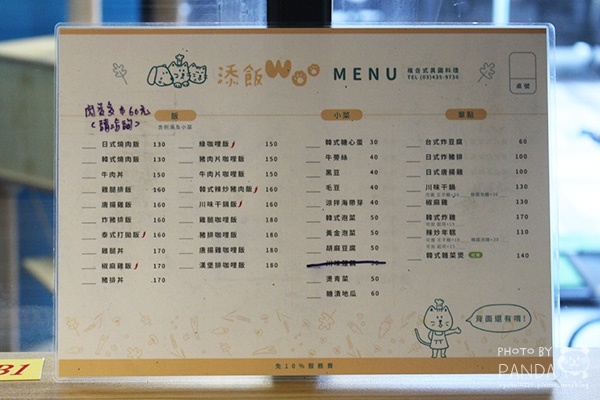 添飯Woo MENU
複合式異國料理
TEL (03)435-9736
桌號
肉蛋多加60元
飯
日式燒肉飯 130
韓式燒肉飯 130
牛肉丼 150
雞腿排飯 160
唐揚雞飯 160
炸豬排飯 160
泰式打拋飯 165
雞腿丼 170
椒麻雞飯 170
豬排丼 170
綠咖哩飯 150
豬肉片咖哩飯 150
牛肉片咖哩飯 150
韓式辣炒豬肉飯 160
川味干鍋飯 160
雞腿咖哩飯 180
豬排咖哩飯 180
唐揚雞咖哩飯 180
漢堡排咖哩飯 180
小菜
韓式糖心蛋 30
牛蒡絲 40
黑豆 40
毛豆 40
涼拌海帶芽 40
韓式泡菜 50
黃金泡菜 50
胡麻豆腐 50
燙青菜 50
糖漬地瓜 60
單點
台式炸豆腐 60
日式炸豬排 100
日式唐揚雞 100
川味干鍋 130
椒麻雞 130
韓式炸雞 170
辣炒年糕 110
韓式雜菜煲 140
背面還有唷!
免10%服務費
B1
PHOTO BY
PANDA